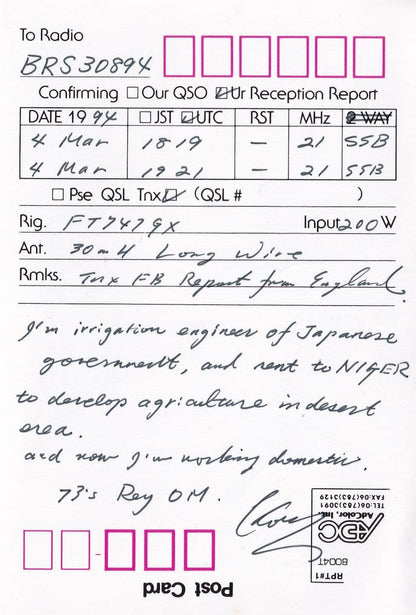 To Radio
BRS30894
Confirming □ Our QSO ☑ Ur Reception Report
DATE 19 94 □ JST ☑ UTC RST MHz 2 WAY
4 Mar 1819 — 21 SSB
4 Mar 1921 — 21 SSB
□ Pse QSL Tnx ☑ (QSL # )
Rig. FT747GX Input 200 W
Ant. 30mH Long Wire
Rmks. Tnx FB Report from England.
I'm irrigation engineer of Japanese
government, and sent to NIGER
to develop agriculture in desert
area.
and now I'm working domestic.
73's Rey OM.
Post Card
RPT#1
8004T
ADC
AdColor, Inc.
TEL:06(763)3091
FAX:06(763)3129